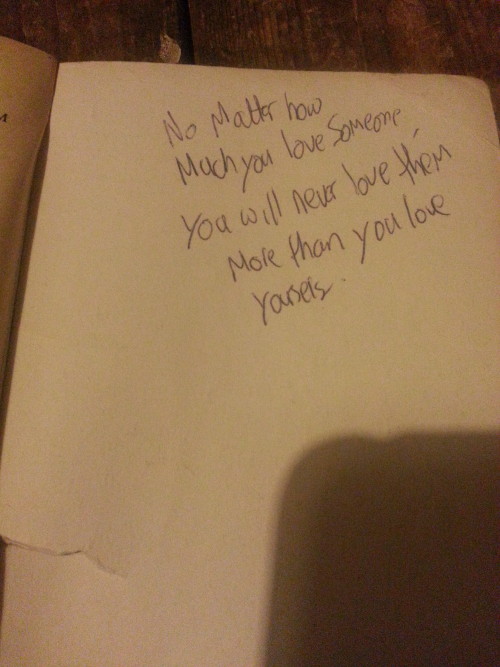 No Matter how
Much you love Someone,
You will never love them
More than you love